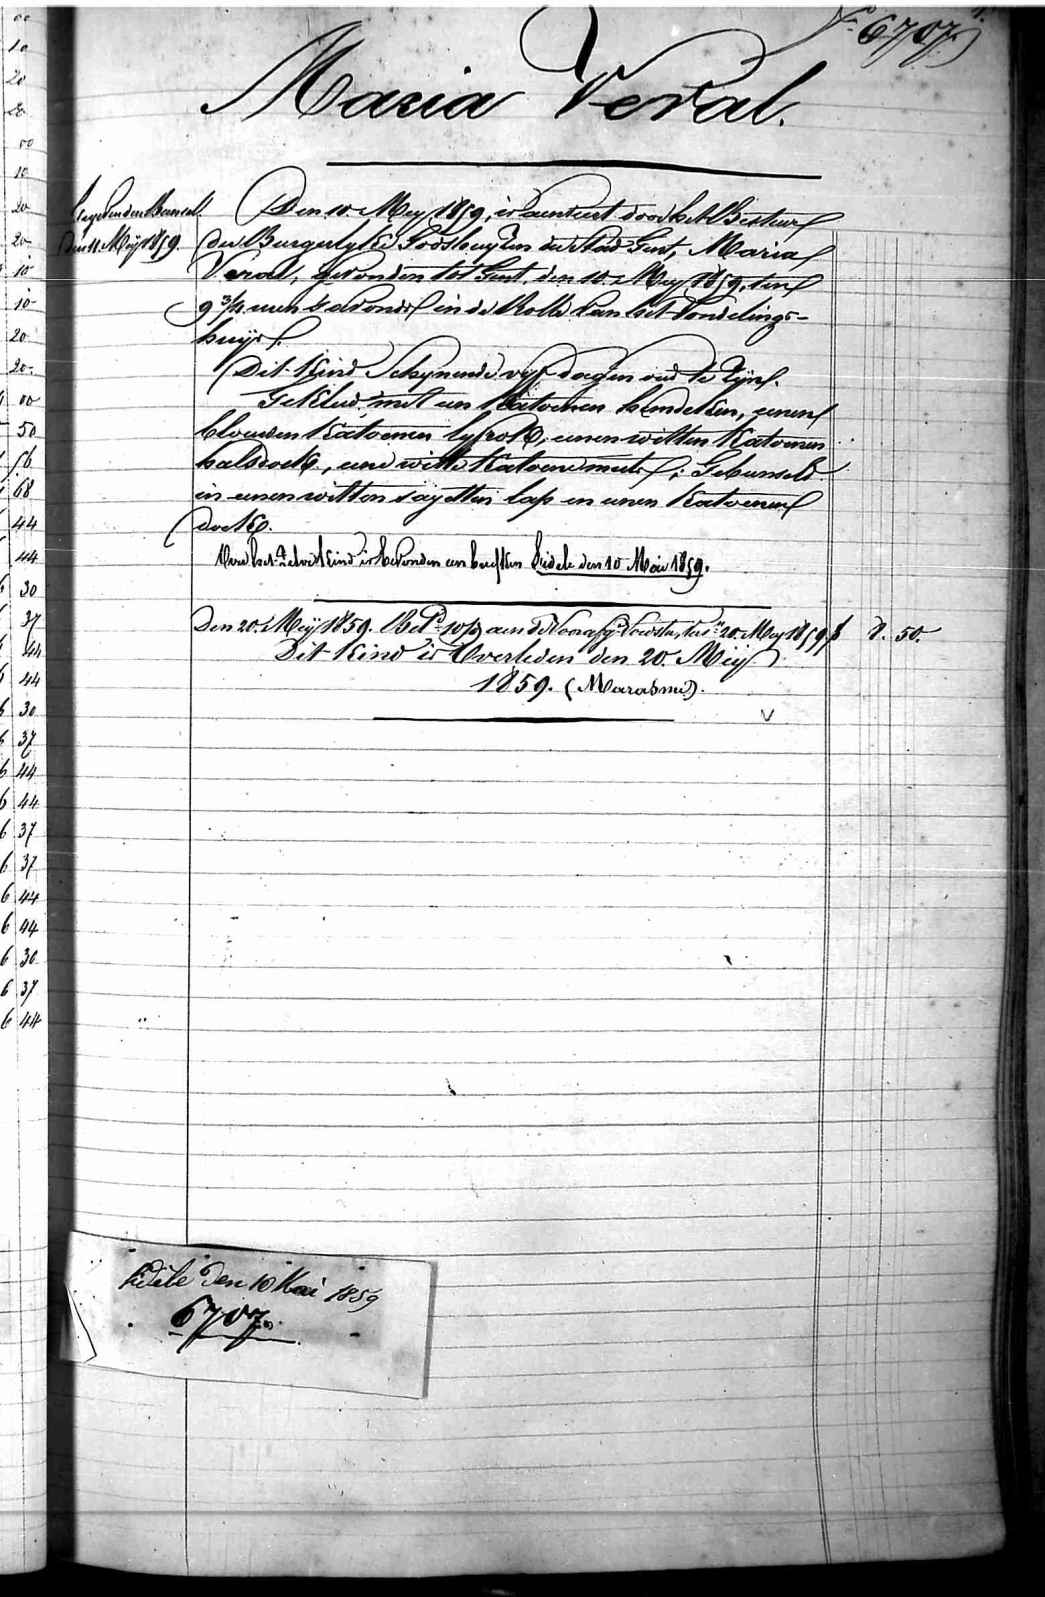 N° 6707.
Maria Veral.
Den 11 Meÿ 1859.
Den 10 Mey 1859, is aenveert door het Bestuer
der Burgerlyke Godshuyzen der Stad Gent, Maria
Veral, gevonden tot Gent, den 10 Mey 1859, ten
9 3/4 uren 's avonds in de Rolle van het Vondelings-
huys.
Dit Kind Schynende vyf dagen oud te Zyn.
Gekleed met een Katoenen hemdeken, eenen
blauwen Katoenen lyfrok, eenen witten Katoenen
halsdoek, eene witte Katoene muts; Gebunseld
in eenen witten sayetten lap en eenen Katoenen
doek.
Over het zelve Kind is bevonden een briefken Fidele den 10 Mai 1859.
Den 20 Meÿ 1859. Bet. aen de 20 Mey 1859 50.
Dit Kind is Overleden den 20 Meÿ
1859. (Marasme).
V
Fidele den 10 Mai 1859
6707.
00
10
20
20
00
10
20
20
10
10
20
20
00
50
56
68
44
44
30
37
44
44
6 30
6 37
6 44
6 44
6 37
6 37
6 44
6 44
6 30
6 37
6 44